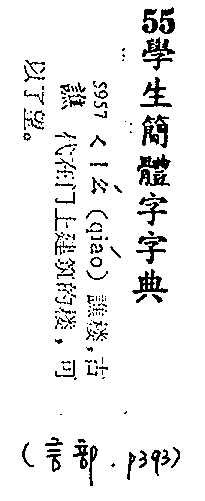 55學生簡體字字典
5957 ㄑㄧㄠˊ (qiáo) 譙楼,古
譙 代在门上建筑的楼,可
以了望。
(言部.p393)